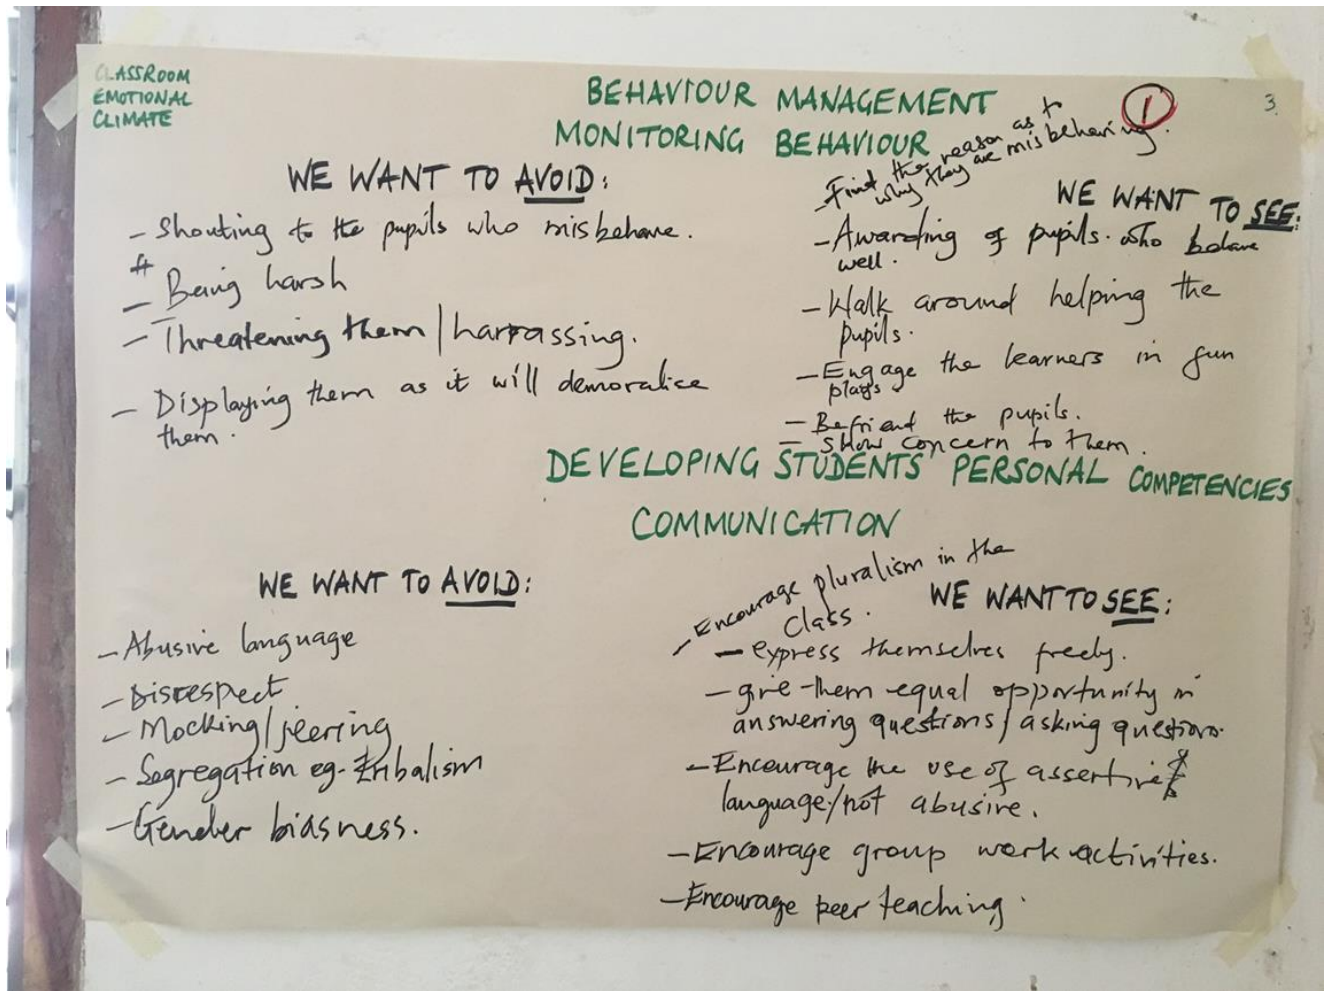 CLASSROOM
EMOTIONAL
CLIMATE
BEHAVIOUR MANAGEMENT
MONITORING BEHAVIOUR
1
3.
WE WANT TO AVOID:
- Shouting to the pupils who misbehave.
- Being harsh
- Threatening them/harrassing.
- Displaying them as it will demoralice
them.
WE WANT TO SEE:
- Find the reason as to
why they are misbehaving.
- Awarding of pupils. who behave
well.
- Walk around helping the
pupils.
- Engage the learners in fun
plays
- Befriend the pupils.
- Show concern to them.
DEVELOPING STUDENTS' PERSONAL COMPETENCIES
COMMUNICATION
WE WANT TO AVOID:
- Abusive language
- Disrespect
- Mocking/jeering
- Segregation eg. tribalism
- Gender biasness.
WE WANT TO SEE:
- Encourage pluralism in the
class.
- express themselves freely.
- give them equal opportunity in
answering questions/asking questions.
- Encourage the use of assertive
language/not abusive.
- Encourage group work activities.
- Encourage peer teaching.